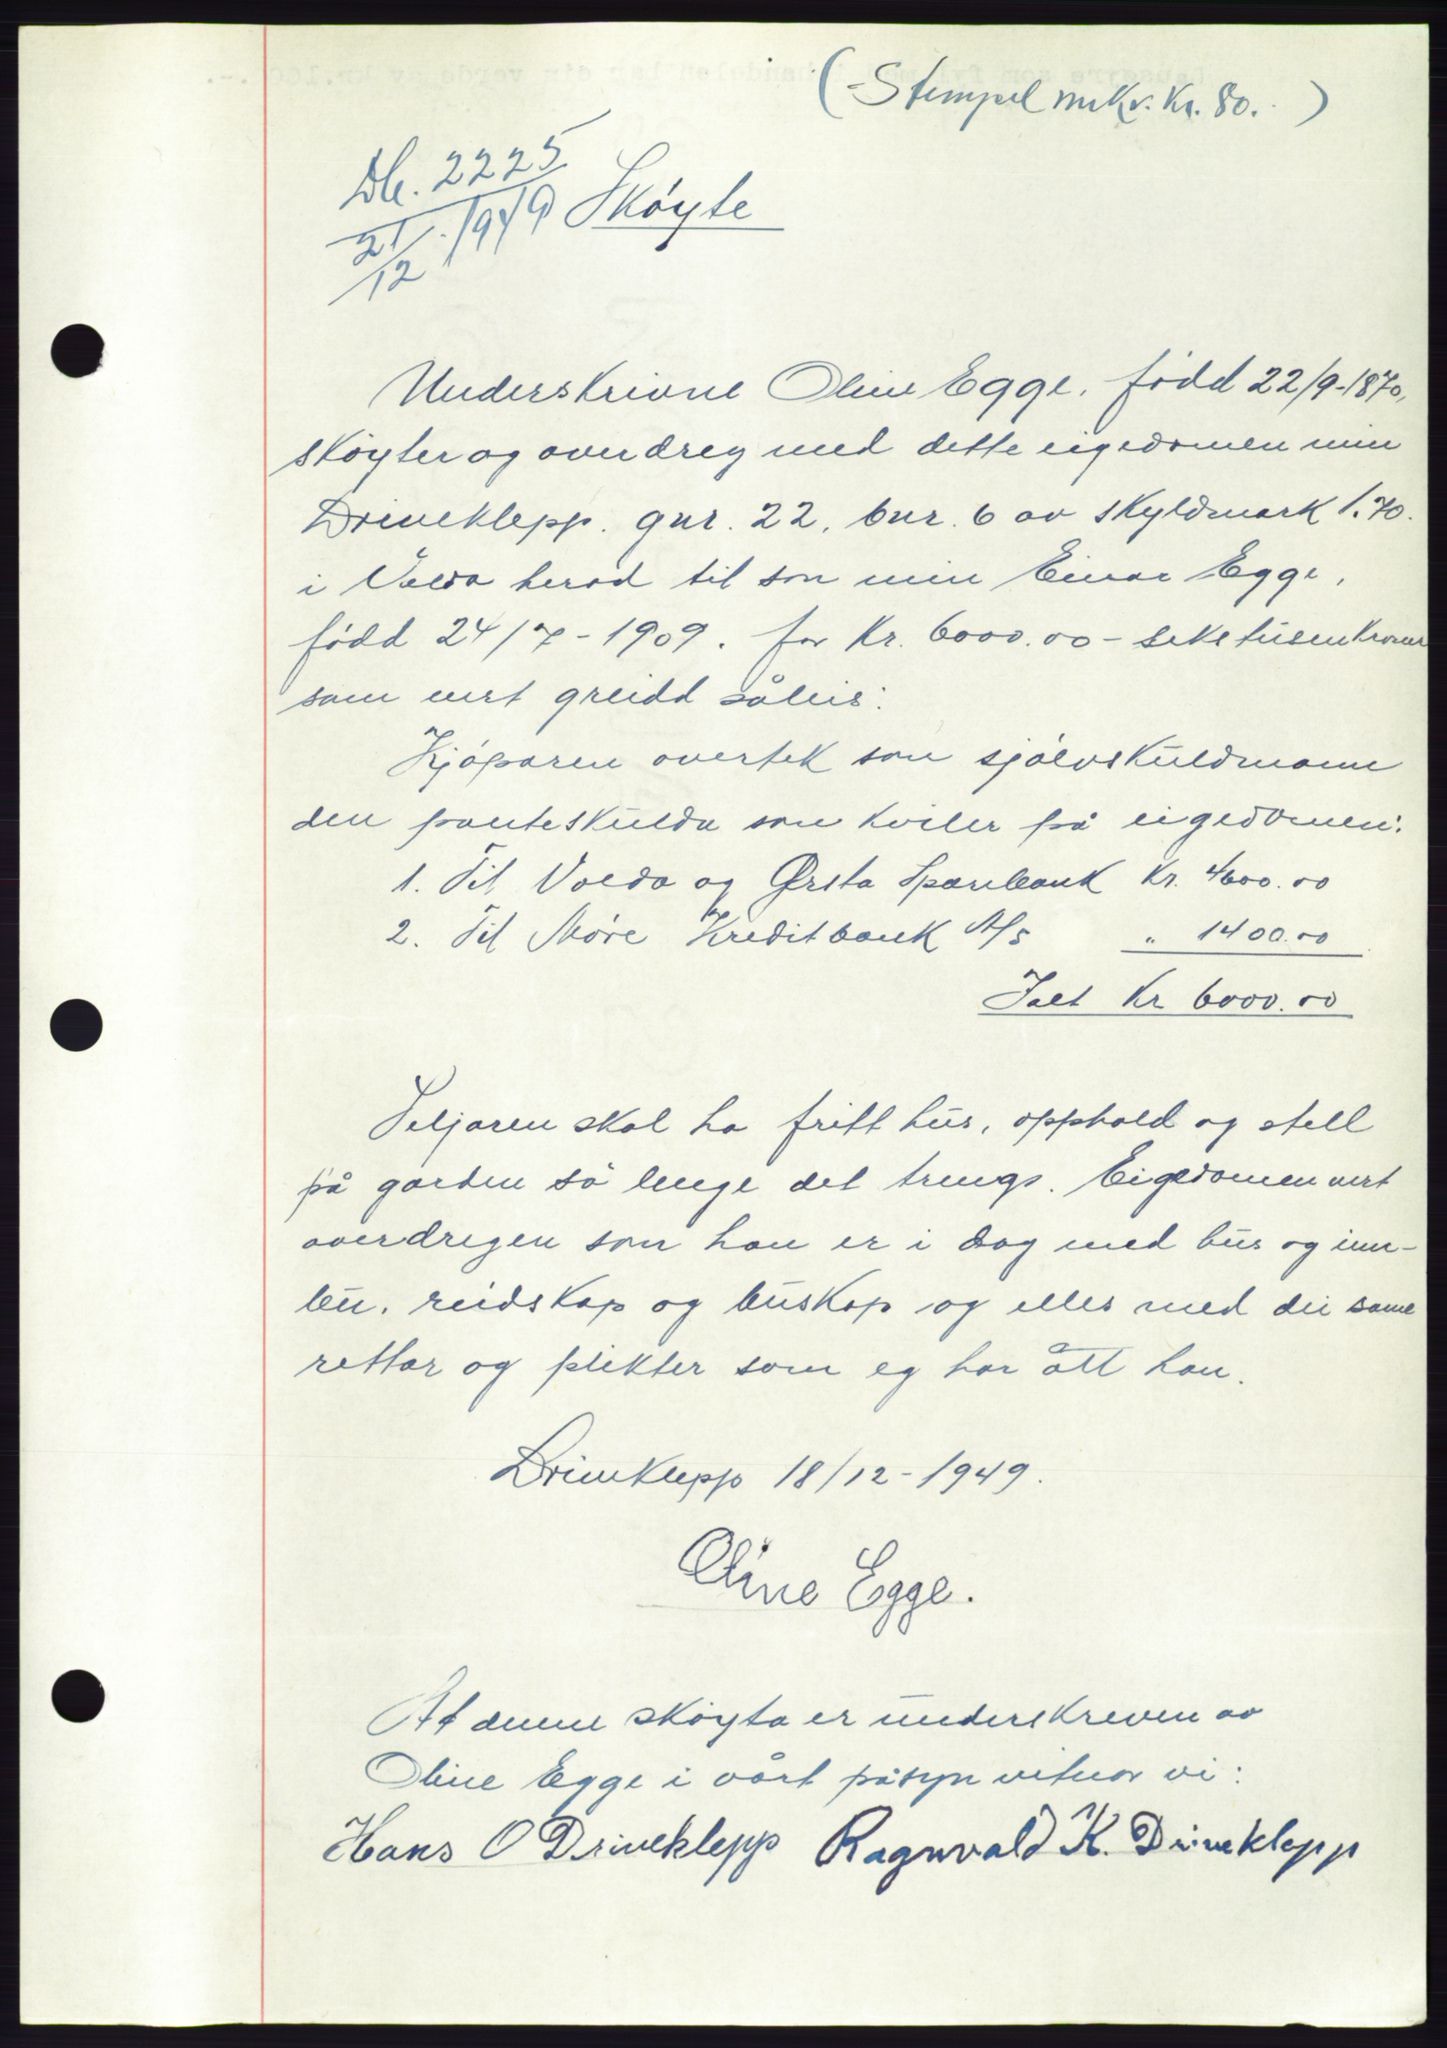 (Stempelmrk. Kr. 80.)
Db. 2225
21/12. 1949 Skøyte
Underskrivne Oline Egge, fødd 22/9-1870,
skøyter og overdreg med dette eigedomen min
Driveklepp. gnr. 22, bnr. 6 av skyldmark 1.70.
i Volda herad til son min Einar Egge,
fødd 24/7-1909. for Kr. 6000.00 - seks tusen kroner
som vert greidd såleis:
Kjøparen overtek som sjølvskuldmann
den panteskulda som kviler på eigedomen:
1. Til Volda og Ørsta Sparebank Kr. 4600.00
2. Til Møre Kreditbank A/s " 1400.00
Ialt Kr 6000.00
Seljaren skal ha fritt hus, opphald og stell
på garden så lenge det trengs. Eigedomen vert
overdregen som han er i dag med hus og inn-
bu, reidskap og buskap og elles med dei same
rettar og plikter som eg har ått han.
Driveklepp 18/12-1949.
Oline Egge.
At denne skøyta er underskreven av
Oline Egge i vårt påsyn vitnar vi:
Hans O Driveklepp Ragnvald K. Driveklepp